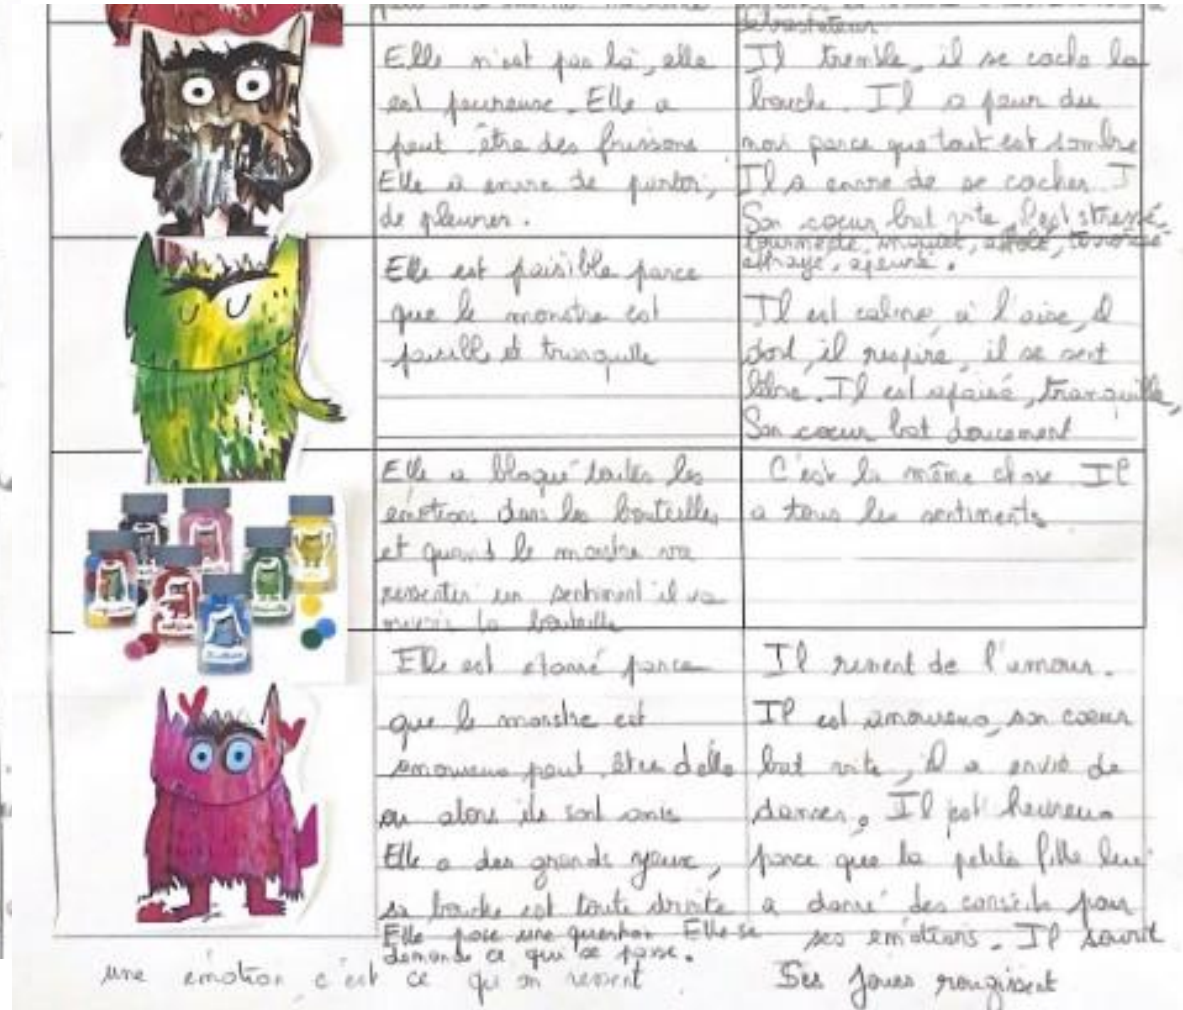 dévastateur.
Elle n'est pas là, elle
est peureuse. Elle a
peut être des frissons
Elle a envie de partir,
de pleurer.
Il tremble, il se cache la
bouche. Il a peur du
noir parce que tout est sombre
Il a envie de se cacher. I
Son coeur bat vite, Il est stressé,
tourmenté, inquiet, affolé, terrorisé
effrayé, apeuré.
Elle est paisible parce
que le monstre est
paisible et tranquille
Il est calme, à l'aise, il
dort, il respire, il se sent
libre. Il est apaisé, tranquille,
Son coeur bat doucement
Elle a bloqué toutes les
émotions dans les bouteilles
et quand le monstre va
ressentir un sentiment il va
ouvrir la bouteille
C'est la même chose Il
a tous les sentiments
Elle est étonné parce
que le monstre est
amoureux peut être d'elle
ou alors ils sont amis
Elle a des grands yeux,
sa bouche est toute droite
Elle pose une question Elle se
demande ce qui se passe.
Il ressent de l'amour.
Il est amoureux, son coeur
bat vite, il a envie de
danser. Il est heureux
parce que la petite fille leur
a donné des conseils pour
ses émotions. Il sourit
Ses joues rougissent
une émotion, c'est ce qu'on ressent